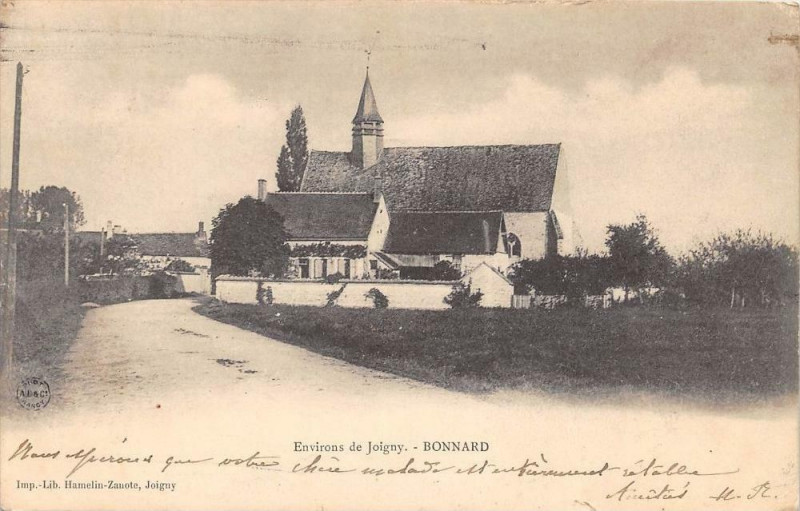 A.B & Cie
NANCY
Environs de Joigny. - BONNARD
Nous espérons que votre chère malade est entièrement rétablie
Imp.-Lib. Hamelin-Zanote, Joigny
Amitiés H. R.